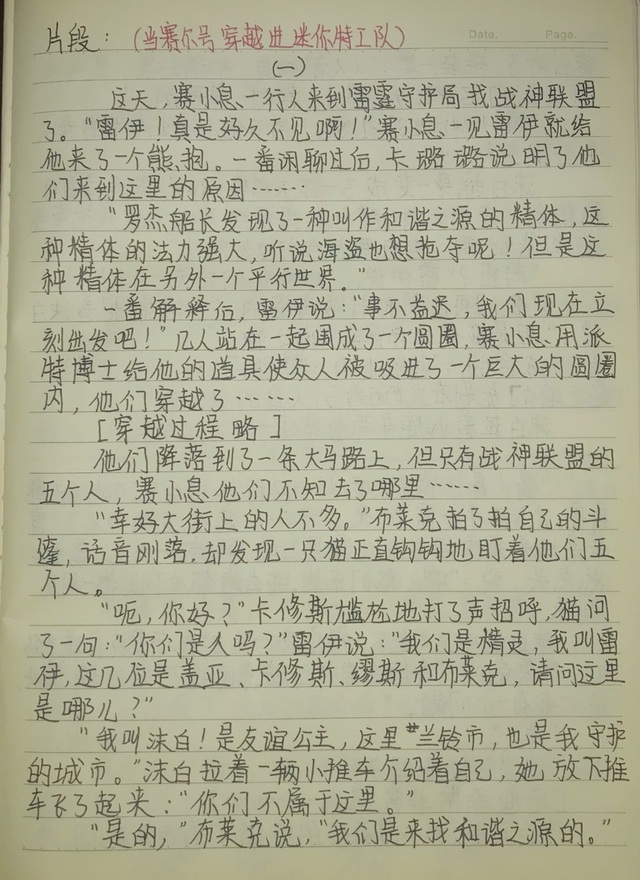 Date. Page.
片段：（当赛尔号穿越进迷你特工队）
（一）
这天，赛小息一行人来到雷霆守护局找战神联盟
了。“雷伊！真是好久不见啊！”赛小息一见雷伊就给
他来了一个熊抱。一番闲聊过后，卡璐璐说明了他
们来到这里的原因……
“罗杰船长发现了一种叫作和谐之源的精体，这
种精体的法力强大，听说海盗也想抢夺呢！但是这
种精体在另外一个平行世界。”
一番解释后，雷伊说：“事不益迟，我们现在立
刻出发吧！”几人站在一起围成了一个圆圈，赛小息用派
特博士给他的道具使众人被吸进了一个巨大的圆圈
内，他们穿越了……
[穿越过程略]
他们降落到了一条大马路上，但只有战神联盟的
五个人，赛小息他们不知去了哪里……
“幸好大街上的人不多。”布莱克拍了拍自己的斗
篷，话音刚落，却发现一只猫正直钩钩地盯着他们五
个人。
“呃，你好？”卡修斯尴尬地打了声招呼，猫问
了一句：“你们是人吗？”雷伊说：“我们是精灵，我叫雷
伊，这几位是盖亚、卡修斯、缪斯和布莱克，请问这里
是哪儿？”
“我叫沫白！是友谊公主，这里兰铃市，也是我守护
的城市。”沫白拉着一辆小推车介绍着自己，她放下推
车飞了起来：“你们不属于这里。”
“是的，”布莱克说，“我们是来找和谐之源的。”